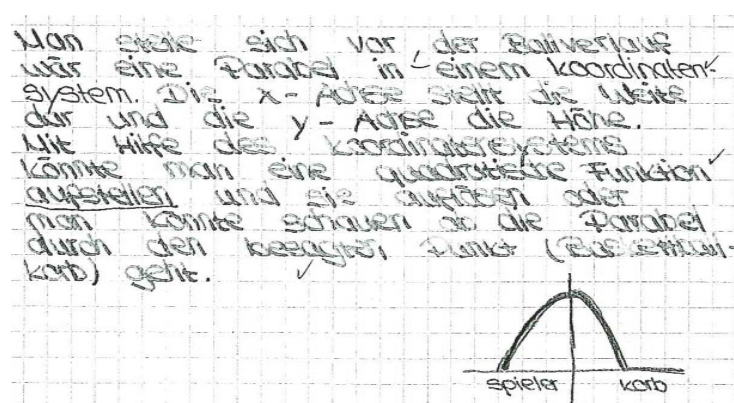 Man stelle sich vor, der Ballverlauf
wär eine Parabel in einem Koordinaten-
system. Die x-Achse stellt die Weite
dar und die y-Achse die Höhe.
Mit Hilfe des Koordinatensystems
könnte man eine quadratische Funktion
aufstellen und sie auflösen oder
man könnte schauen ob die Parabel
durch den besagten Punkt (Basketball-
korb) geht.
Spieler Korb